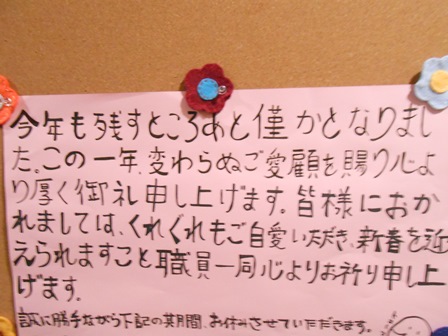 今年も残すところあと僅かとなりまし
た。この一年、変わらぬご愛顧を賜り心よ
り厚く御礼申し上げます。皆様におか
れましては、くれぐれもご自愛いただき、新春を迎
えられますこと職員一同心よりお祈り申し上
げます。
誠に勝手ながら下記の其期間、お休みさせていただきます。